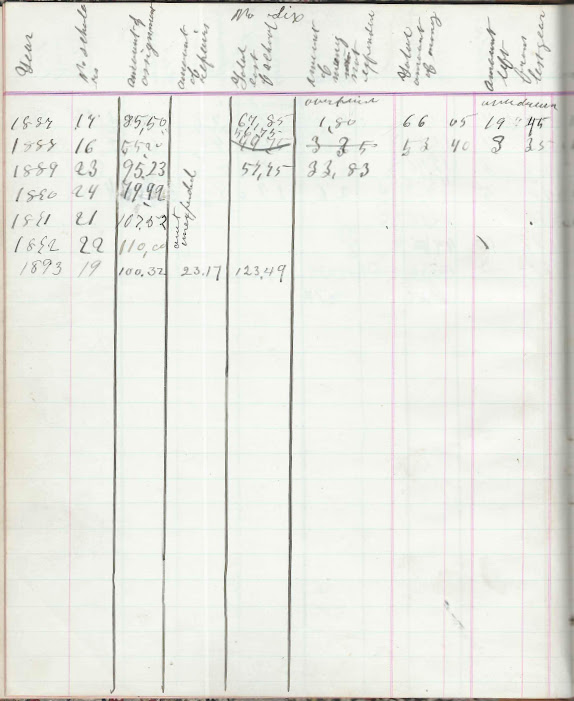 No six
Year
No schol
amount of assignment
amount of Repairs
Total cost of school
amount of money not expended
Total amount of money
amount left from last year
overdrawn overdrawn
1887 14 85,50 67,85 1,80 66 05 19 45
56,75
1888 16 55 20 3 35 53 40 3 35
1889 23 95,23 57,45 33,83
1890 24 79,99
1891 21 107,52
amt unexpended
1892 22 110,00
1893 19 100.32 23.17 123.49